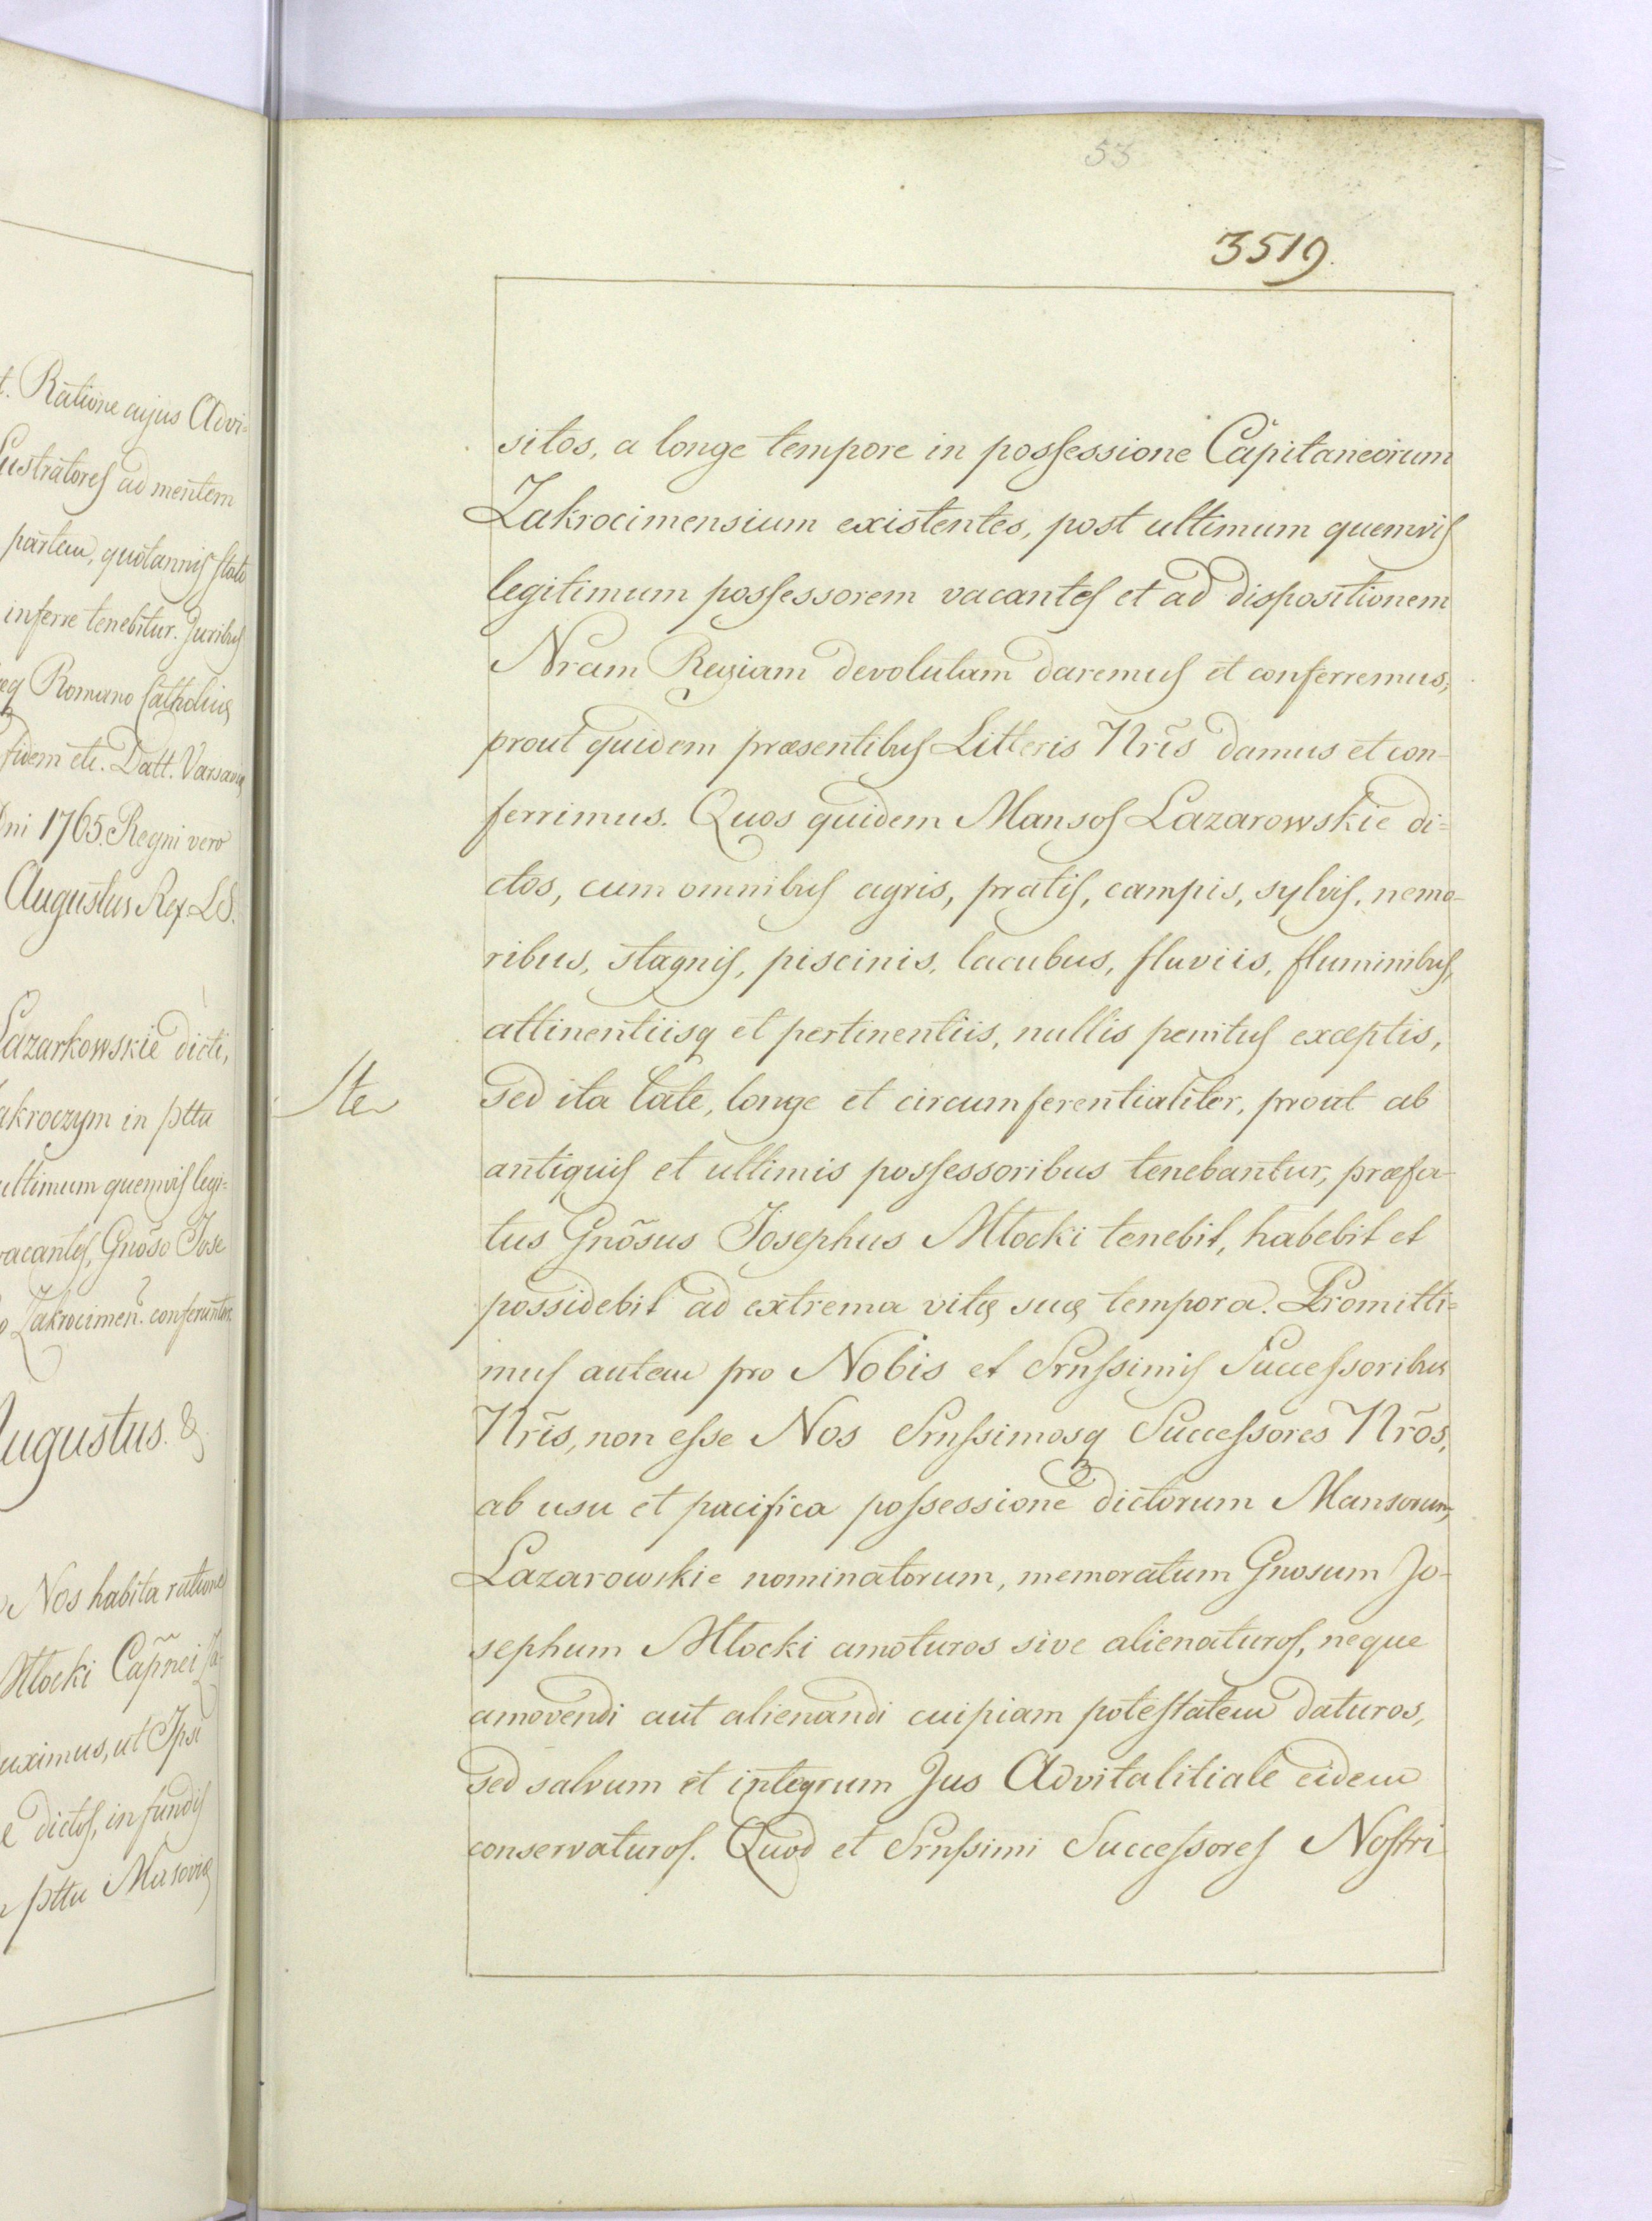 t. Ratione cujus Advi-
Lustratores ad mentem
partem, quotannis
inferre tenebitur. Juribus
Romano Catholicæ
fidem etc. Datt. Varsaviæ
Dni 1765. Regni vero
Augustus Rex LS.
Lazarkowskie dicti,
akroczym in pttu
ultimum quemvis legi=
vacantes, Gnõso Jose
Zakrocimen. conferuntur.
Augustus. &
Nos habita ratione
Młocki Capñei Za-
duximus, ut Ipsi
e dictos, in fundis
pttu Masoviæ
53
3519.
sitos, a longe tempore in possessione Capitaneorum
Zakrocimensium existentes, post ultimum quemvis
legitimum possessorem vacantes et ad dispositionem
Nram Regiam devolutam daremus et conferremus,
prout quidem præsentibus Litteris Nrĩs damus et con-
ferrimus. Quos quidem Mansos Lazarowskie di=
ctos, cum omnibus agris, pratis, campis, sylvis, nemo-
ribus, stagnis, piscinis, lacubus, fluviis, fluminibus,
attinentiisq et pertinentiis, nullis penitus exceptis,
sed ita late, longe et circumferentialiter, prout ab
antiquis et ultimis possessoribus tenebantur, præfa-
tus Gnõsus Josephus Młocki tenebit, habebit et
possidebit ad extrema vitæ suæ tempora. Promitti=
mus autem pro Nobis et Srnssimis Successoribus
Nrĩs, non esse Nos Srnssimosq Successores Nrõs,
ab usu et pacifica possessione dictorum Mansorum,
Lazarowskie nominatorum, memoratum Gnosum Jo-
sephum Młocki amoturos sive alienaturos, neque
amovendi aut alienandi cuipiam potestatem daturos,
sed salvum et integrum Jus Advitalitiale eidem
conservaturos. Quod et Srnssimi Successores Nostri